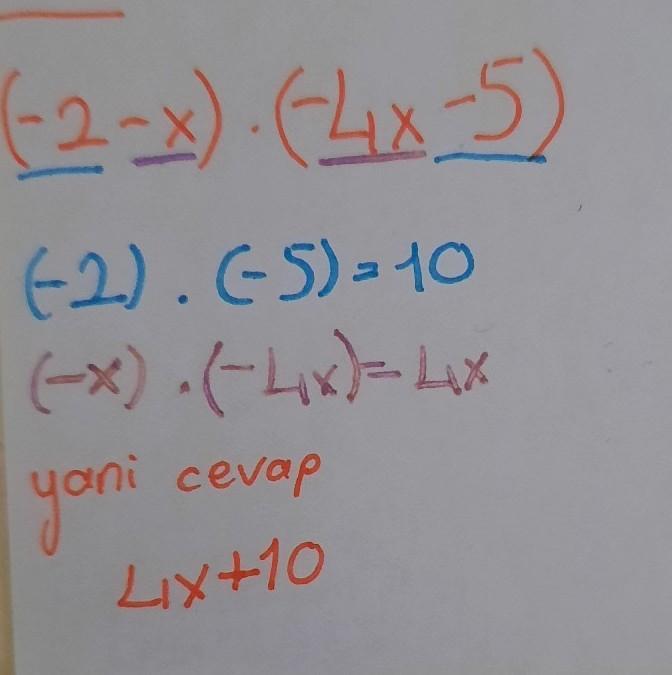 (-2-x).(-4x-5)
(-2).(-5)=10
(-x).(-4x)=4x
yani cevap
4x+10